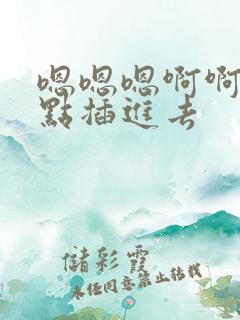 嗯嗯嗯啊啊
點插進去
儲彩霞
未经同意禁止转载